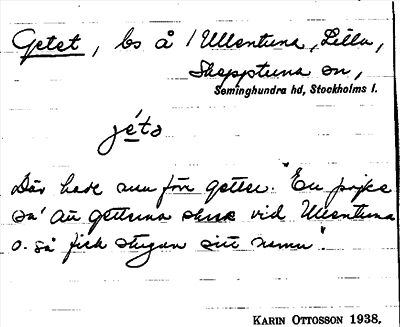 Getet, bs å /Ullentuna, Lilla,
Skepptuna sn,
Seminghundra hd, Stockholms l.
jé̱tə
Där hade man förr getter. "En pojke
sa' att getterna skrek vid Ullentuna
o. så fick stugan sitt namn".
KARIN OTTOSSON 1938.